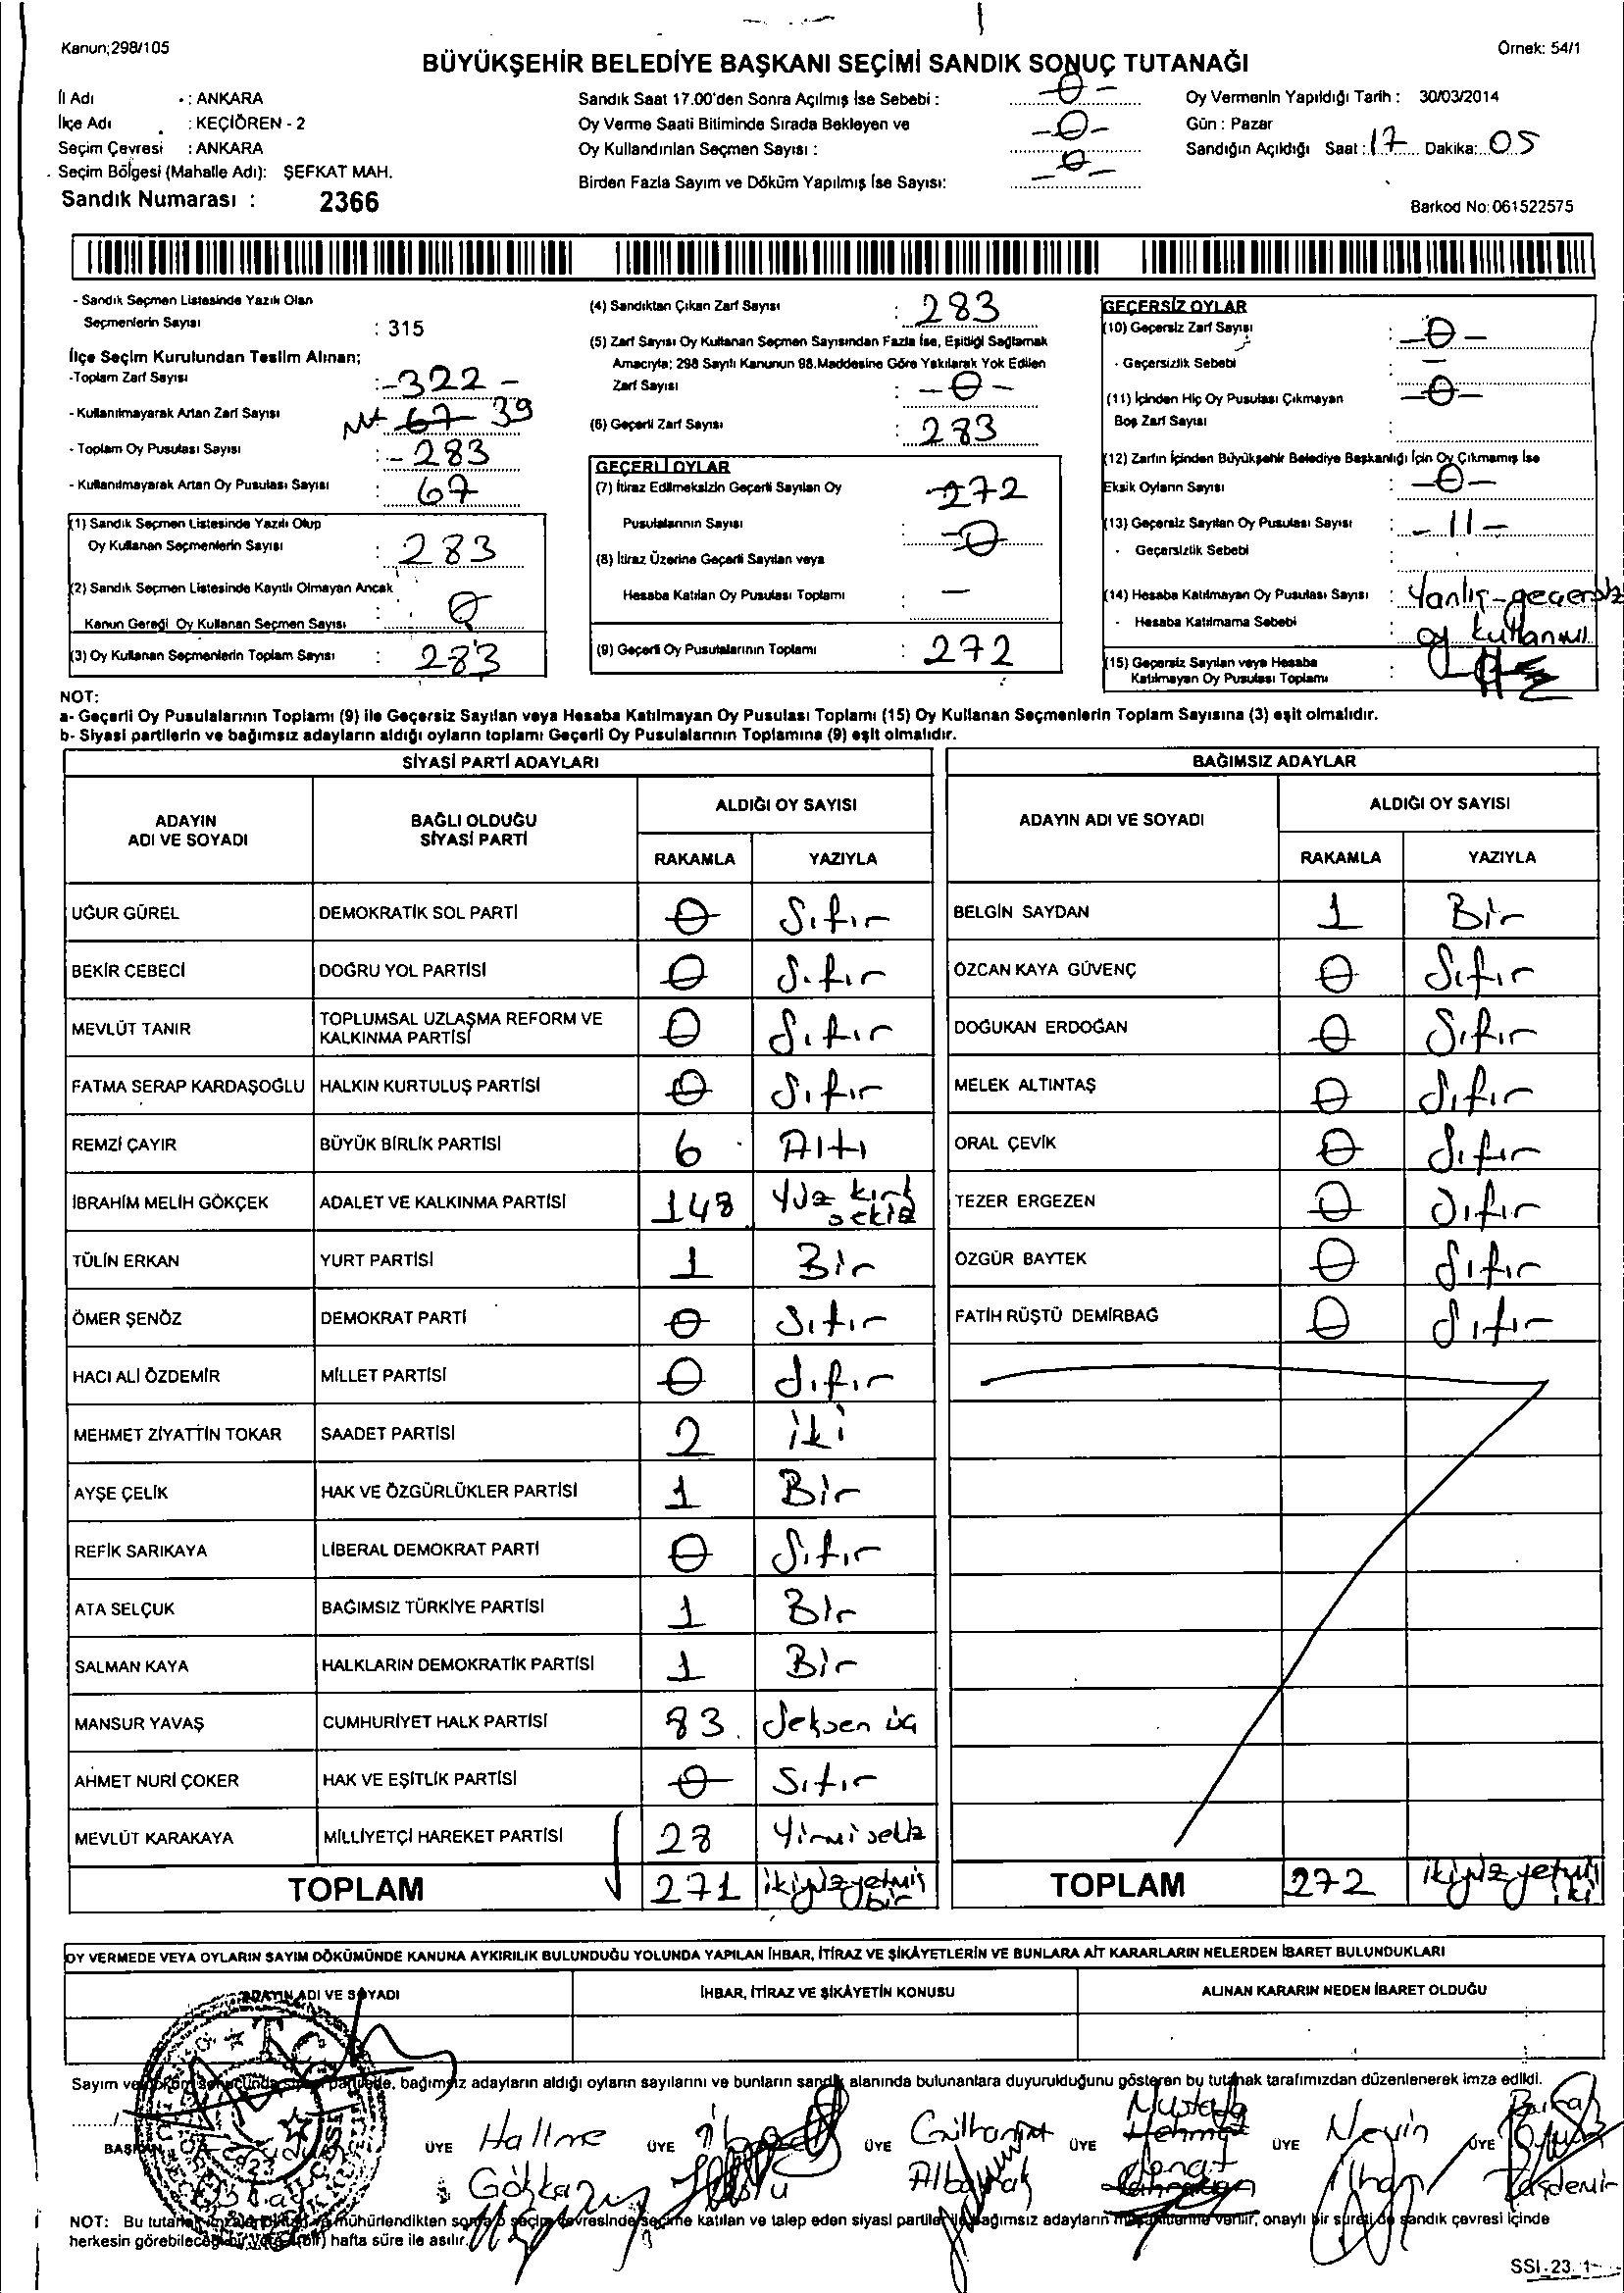 Kanun;298/105
Örnek: 54/1
BÜYÜKŞEHİR BELEDİYE BAŞKANI SEÇİMİ SANDIK SONUÇ TUTANAĞI
İl Adı : ANKARA
İlçe Adı : KEÇİÖREN - 2
Seçim Çevresi : ANKARA
Seçim Bölgesi (Mahalle Adı): ŞEFKAT MAH.
Sandık Numarası : 2366
Sandık Saat 17.00'den Sonra Açılmış İse Sebebi : -0-
Oy Verme Saati Bitiminde Sırada Bekleyen ve
Oy Kullandırılan Seçmen Sayısı : -0-
Birden Fazla Sayım ve Döküm Yapılmış İse Sayısı: -0-
Oy Vermenin Yapıldığı Tarih : 30/03/2014
Gün : Pazar
Sandığın Açıldığı Saat : 17 Dakika: 05
Barkod No: 061522575
- Sandık Seçmen Listesinde Yazılı Olan
Seçmenlerin Sayısı : 315
İlçe Seçim Kurulundan Teslim Alınan;
-Toplam Zarf Sayısı : -322-
- Kullanılmayarak Artan Zarf Sayısı 67 39
- Toplam Oy Pusulası Sayısı : -283
- Kullanılmayarak Artan Oy Pusulası Sayısı : 67
(1) Sandık Seçmen Listesinde Yazılı Olup
Oy Kullanan Seçmenlerin Sayısı : 283
(2) Sandık Seçmen Listesinde Kayıtlı Olmayan Ancak
Kanun Gereği Oy Kullanan Seçmen Sayısı : 0
(3) Oy Kullanan Seçmenlerin Toplam Sayısı : 283
(4) Sandıktan Çıkan Zarf Sayısı : 283
(5) Zarf Sayısı Oy Kullanan Seçmen Sayısından Fazla İse, Eşitliği Sağlamak
Amacıyla; 298 Sayılı Kanunun 98.Maddesine Göre Yakılarak Yok Edilen
Zarf Sayısı : -0-
(6) Geçerli Zarf Sayısı : 283
GEÇERLİ OYLAR
(7) İtiraz Edilmeksizin Geçerli Sayılan Oy
Pusulalarının Sayısı : -272
-0
(8) İtiraz Üzerine Geçerli Sayılan veya
Hesaba Katılan Oy Pusulası Toplamı : —
(9) Geçerli Oy Pusulalarının Toplamı : 272
GEÇERSİZ OYLAR
(10) Geçersiz Zarf Sayısı : -0-
- Geçersizlik Sebebi : —
(11) İçinden Hiç Oy Pusulası Çıkmayan
Boş Zarf Sayısı : -0-
(12) Zarfın İçinden Büyükşehir Belediye Başkanlığı İçin Oy Çıkmamış İse
Eksik Oyların Sayısı : -0-
(13) Geçersiz Sayılan Oy Pusulası Sayısı : -11-
- Geçersizlik Sebebi :
(14) Hesaba Katılmayan Oy Pusulası Sayısı : Yanlış-geçersiz
- Hesaba Katılmama Sebebi : oy kullanmı
(15) Geçersiz Sayılan veya Hesaba
Katılmayan Oy Pusulası Toplamı :
NOT:
a- Geçerli Oy Pusulalarının Toplamı (9) ile Geçersiz Sayılan veya Hesaba Katılmayan Oy Pusulası Toplamı (15) Oy Kullanan Seçmenlerin Toplam Sayısına (3) eşit olmalıdır.
b- Siyasi partilerin ve bağımsız adayların aldığı oyların toplamı Geçerli Oy Pusulalarının Toplamına (9) eşit olmalıdır.
SİYASİ PARTİ ADAYLARI
ADAYIN ADI VE SOYADI
BAĞLI OLDUĞU SİYASİ PARTİ
ALDIĞI OY SAYISI
RAKAMLA YAZIYLA
UĞUR GÜREL DEMOKRATİK SOL PARTİ 0 Sıfır
BEKİR CEBECİ DOĞRU YOL PARTİSİ 0 Sıfır
MEVLÜT TANIR TOPLUMSAL UZLAŞMA REFORM VE KALKINMA PARTİSİ 0 Sıfır
FATMA SERAP KARDAŞOĞLU HALKIN KURTULUŞ PARTİSİ 0 Sıfır
REMZİ ÇAYIR BÜYÜK BİRLİK PARTİSİ 6 Altı
İBRAHİM MELİH GÖKÇEK ADALET VE KALKINMA PARTİSİ 148 Yüz kırk sekiz
TÜLİN ERKAN YURT PARTİSİ 1 Bir
ÖMER ŞENÖZ DEMOKRAT PARTİ 0 Sıfır
HACI ALİ ÖZDEMİR MİLLET PARTİSİ 0 Sıfır
MEHMET ZİYATTİN TOKAR SAADET PARTİSİ 2 iki
AYŞE ÇELİK HAK VE ÖZGÜRLÜKLER PARTİSİ 1 Bir
REFİK SARIKAYA LİBERAL DEMOKRAT PARTİ 0 Sıfır
ATA SELÇUK BAĞIMSIZ TÜRKİYE PARTİSİ 1 Bir
SALMAN KAYA HALKLARIN DEMOKRATİK PARTİSİ 1 Bir
MANSUR YAVAŞ CUMHURİYET HALK PARTİSİ 83 Seksen üç
AHMET NURİ ÇOKER HAK VE EŞİTLİK PARTİSİ 0 Sıfır
MEVLÜT KARAKAYA MİLLİYETÇİ HAREKET PARTİSİ 28 Yirmi sekiz
TOPLAM 271 ikiyüzyetmiş bir
BAĞIMSIZ ADAYLAR
ADAYIN ADI VE SOYADI
ALDIĞI OY SAYISI
RAKAMLA YAZIYLA
BELGİN SAYDAN 1 Bir
ÖZCAN KAYA GÜVENÇ 0 Sıfır
DOĞUKAN ERDOĞAN 0 Sıfır
MELEK ALTINTAŞ 0 Sıfır
ORAL ÇEVİK 0 Sıfır
TEZER ERGEZEN 0 Sıfır
ÖZGÜR BAYTEK 0 Sıfır
FATİH RÜŞTÜ DEMİRBAĞ 0 Sıfır
TOPLAM 272 ikiyüzyetmiş iki
OY VERMEDE VEYA OYLARIN SAYIM DÖKÜMÜNDE KANUNA AYKIRILIK BULUNDUĞU YOLUNDA YAPILAN İHBAR, İTİRAZ VE ŞİKÂYETLERİN VE BUNLARA AİT KARARLARIN NELERDEN İBARET BULUNDUKLARI
ADAYIN ADI VE SOYADI
İHBAR, İTİRAZ VE ŞİKÂYETİN KONUSU
ALINAN KARARIN NEDEN İBARET OLDUĞU
Sayım ve döküm sonucunda siyasi partilerle, bağımsız adayların aldığı oyların sayılarını ve bunların sandık alanında bulunanlara duyurulduğunu gösteren bu tutanak tarafımızdan düzenlenerek imza edildi.
BAŞKAN
ÜYE Halime
ÜYE
ÜYE
ÜYE Mustafa Mehmet
ÜYE Nevin İlhan
ÜYE Taşdemir
NOT: Bu tutanak imzalanıp mühürlendikten sonra o seçim çevresinde seçime katılan ve talep eden siyasi partiler ile bağımsız adayların müşahitlerine verilir, onaylı bir sureti de sandık çevresi içinde
herkesin görebileceği bir yere (bir) hafta süre ile asılır.
SSI-23